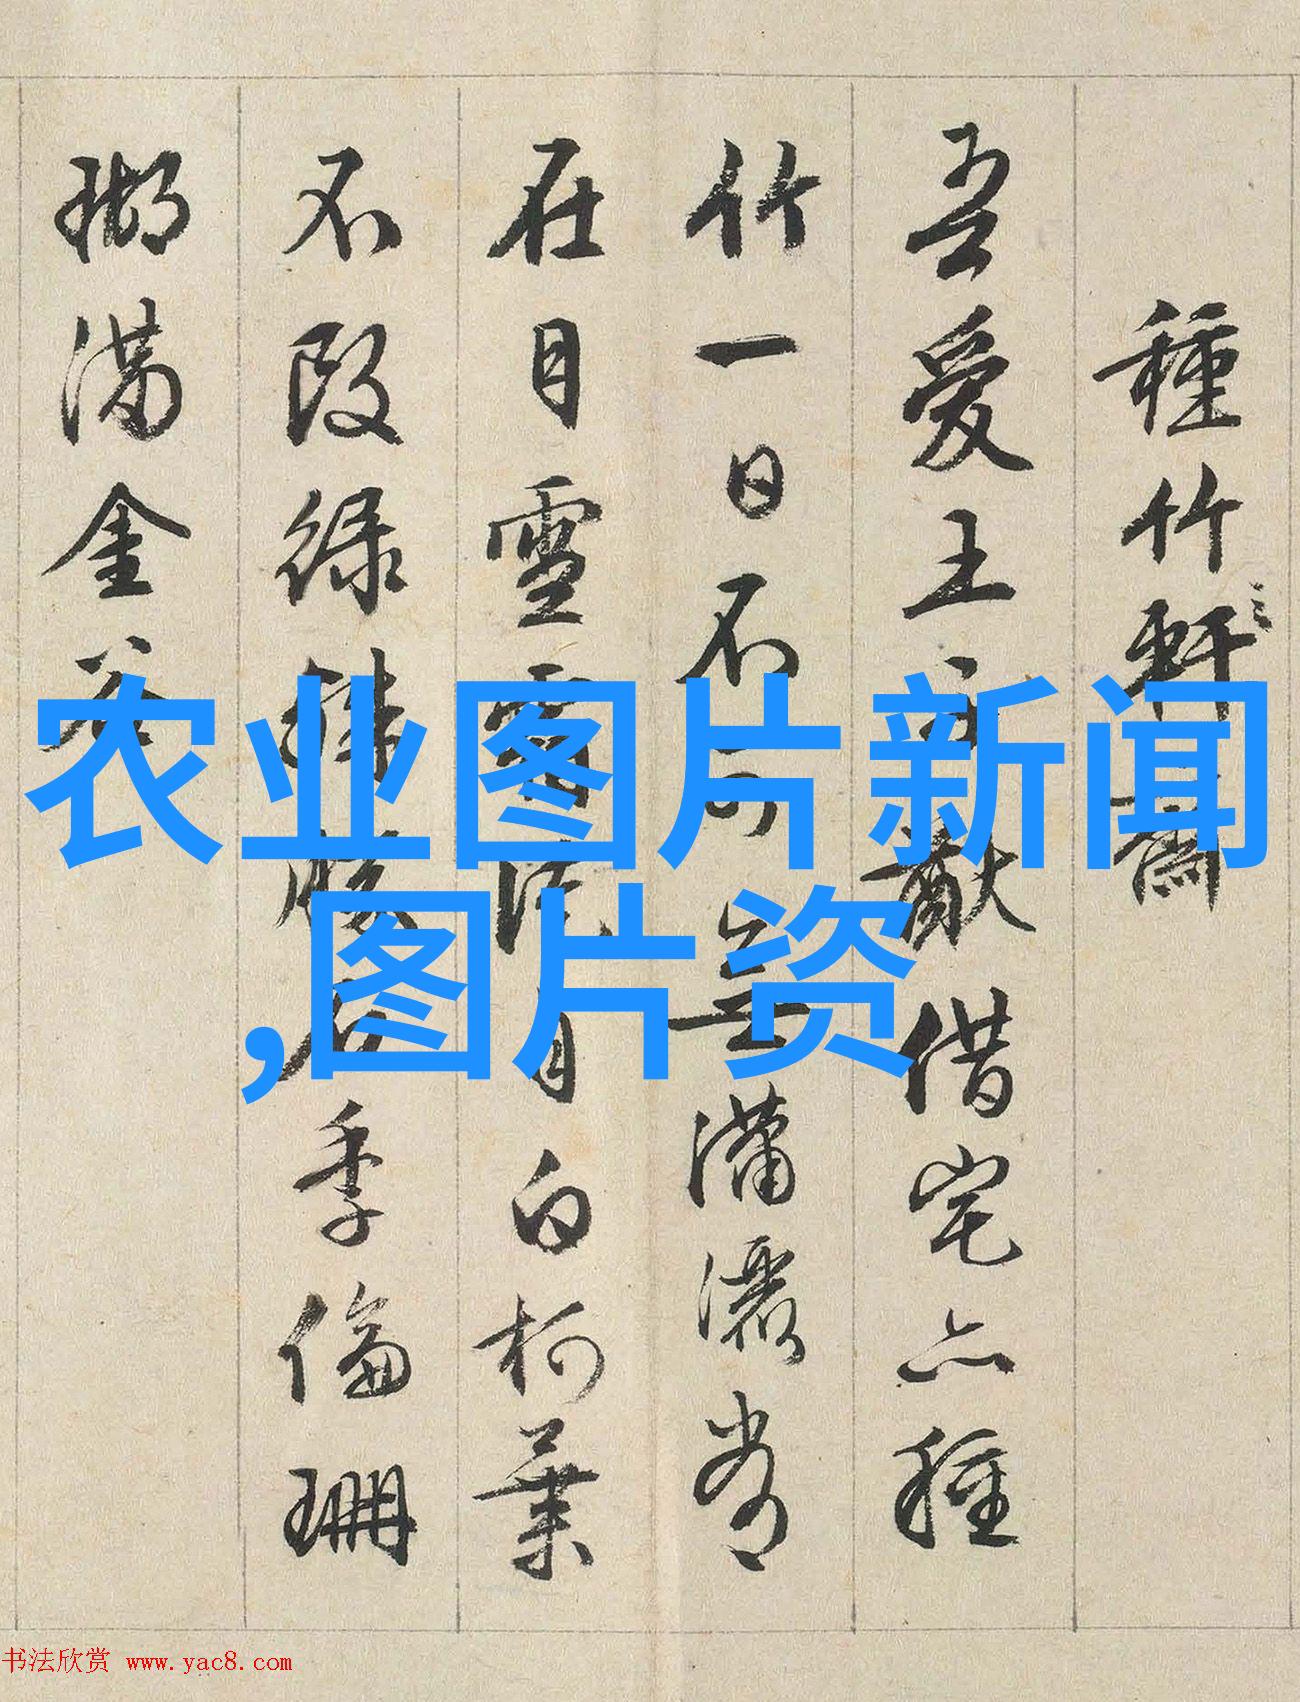 種竹軒齋
吾愛王子猷借宅亦種
竹一日不可無瀟灑常
在目雪霜徒自白柯葉
不改綠殊勝石季倫珊
瑚滿金谷
农业图片新闻
,图片资
书法欣赏 www.yac8.com